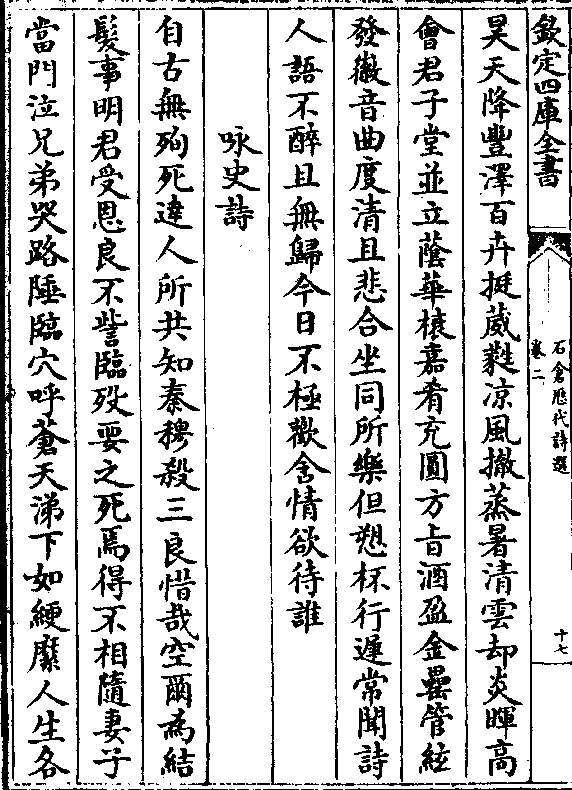 欽定四庫全書
石倉歷代詩選
卷二
十七
昊天降豐澤百卉挺葳蕤凉風撤蒸暑清雲却炎暉高
會君子堂並立蔭華榱嘉肴充圓方旨酒盈金罍管絃
發徽音曲度清且悲合坐同所樂但愬杯行遲常聞詩
人語不醉且無歸今日不極歡含情欲待誰
咏史詩
自古無殉死達人所共知秦穆殺三良惜哉空爾為結
髮事明君受恩良不訾臨歿要之死焉得不相隨妻子
當門泣兄弟哭路陲臨穴呼蒼天涕下如綆縻人生各